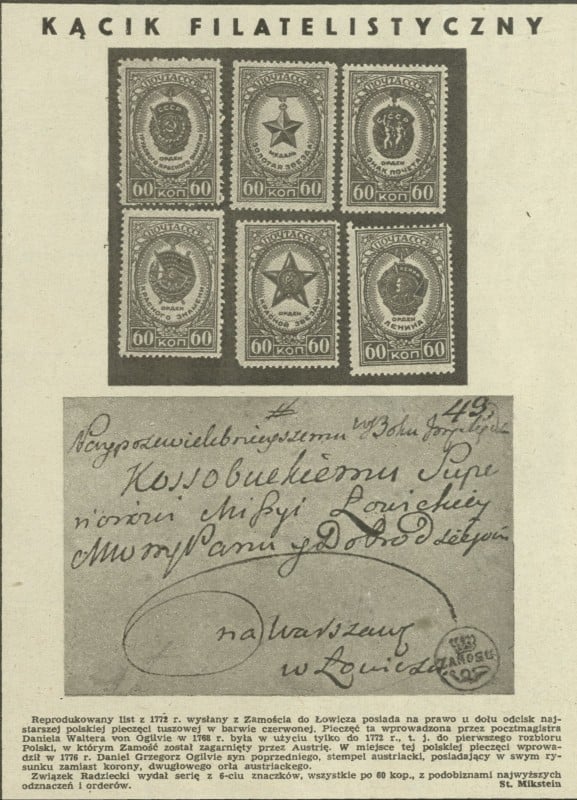 KĄCIK FILATELISTYCZNY
ПОЧТА СССР
ОРДЕН
ТРУДОВОГО КРАСНОГО ЗНАМЕНИ
60 КОП 60
ПОЧТА СССР
МЕДАЛЬ
ЗОЛОТАЯ ЗВЕЗДА
60 КОП 60
ПОЧТА СССР
ОРДЕН
ЗНАК ПОЧЕТА
60 КОП 60
ПОЧТА СССР
ОРДЕН
КРАСНОГО ЗНАМЕНИ
60 КОП 60
ПОЧТА СССР
ОРДЕН
КРАСНОЙ ЗВЕЗДЫ
60 КОП 60
ПОЧТА СССР
ОРДЕН
ЛЕНИНА
60 КОП 60
49
w Boku
Kossobuckiemu Supe
riorowi Missyi Łowickiey
Panu y Dobrodziejowi
na Warszawę
w Łowiczu
ZAMOSC
Reprodukowany list z 1772 r. wysłany z Zamościa do Łowicza posiada na prawo u dołu odcisk naj-
starszej polskiej pieczęci tuszowej w barwie czerwonej. Pieczęć ta wprowadzona przez pocztmagistra
Daniela Waltera von Ogilvie w 1768 r. była w użyciu tylko do 1772 r., t. j. do pierwszego rozbioru
Polski, w którym Zamość został zagarnięty przez Austrię. W miejsce tej polskiej pieczęci wprowa-
dził w 1776 r. Daniel Grzegorz Ogilvie syn poprzedniego, stempel austriacki, posiadający w swym ry-
sunku zamiast korony, dwugłowego orła austriackiego.
Związek Radziecki wydał serię z 6-ciu znaczków, wszystkie po 60 kop., z podobiznami najwyższych
odznaczeń i orderów. St. Mikstein